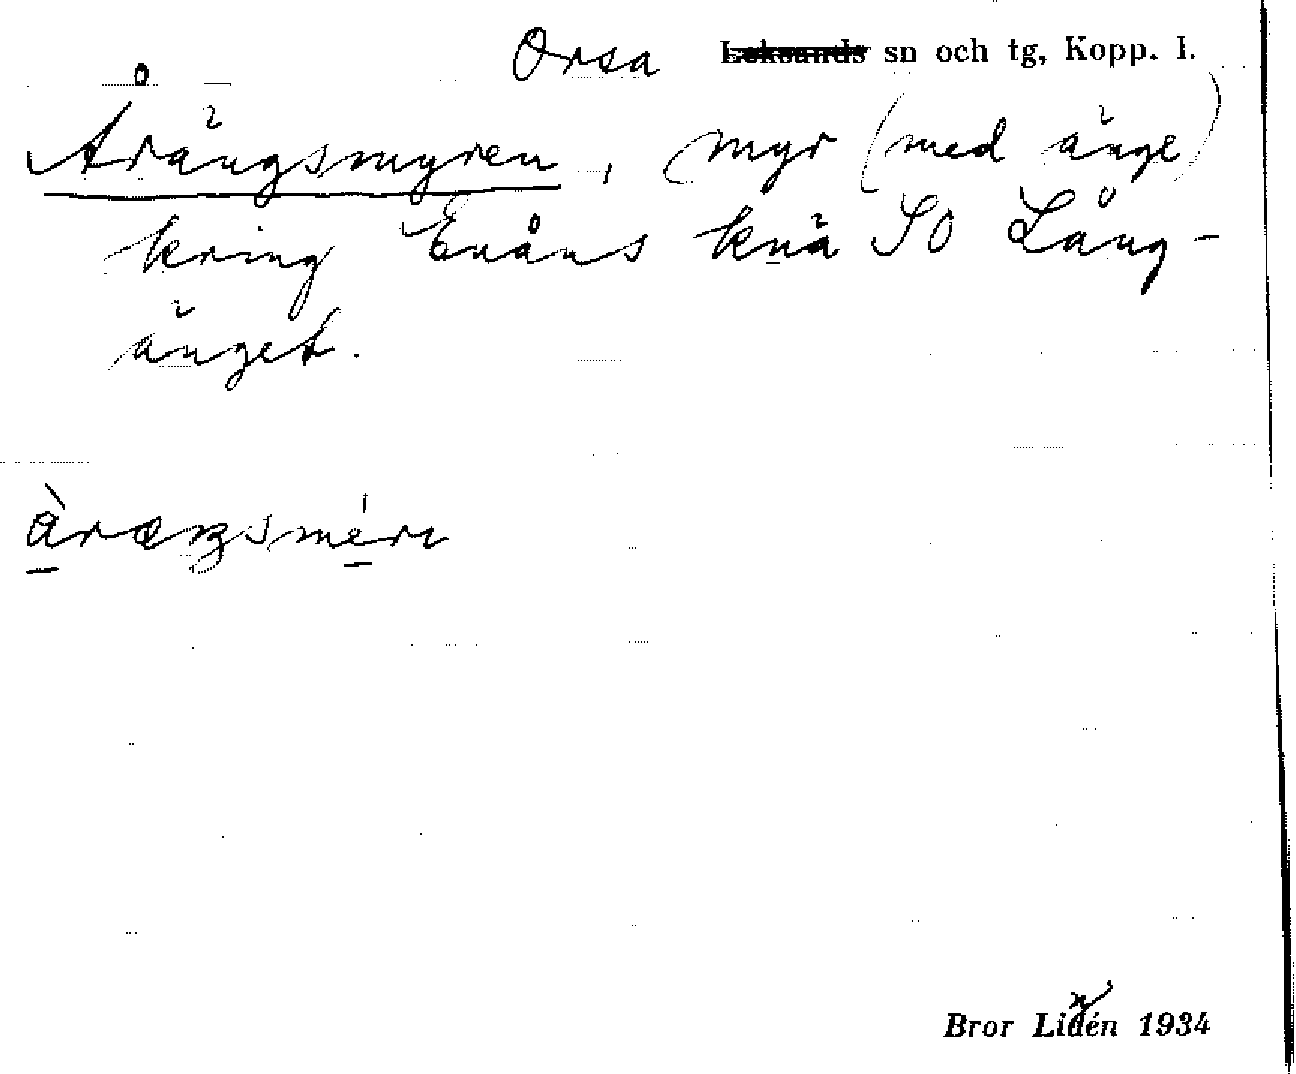 Orsa Leksands sn och tg, Kopp. l.
Årängsmyren, myr (med änge)
kring Enåns knä SO Lång-
änget.
àræŋsmérɩ
Bror Lindén 1934